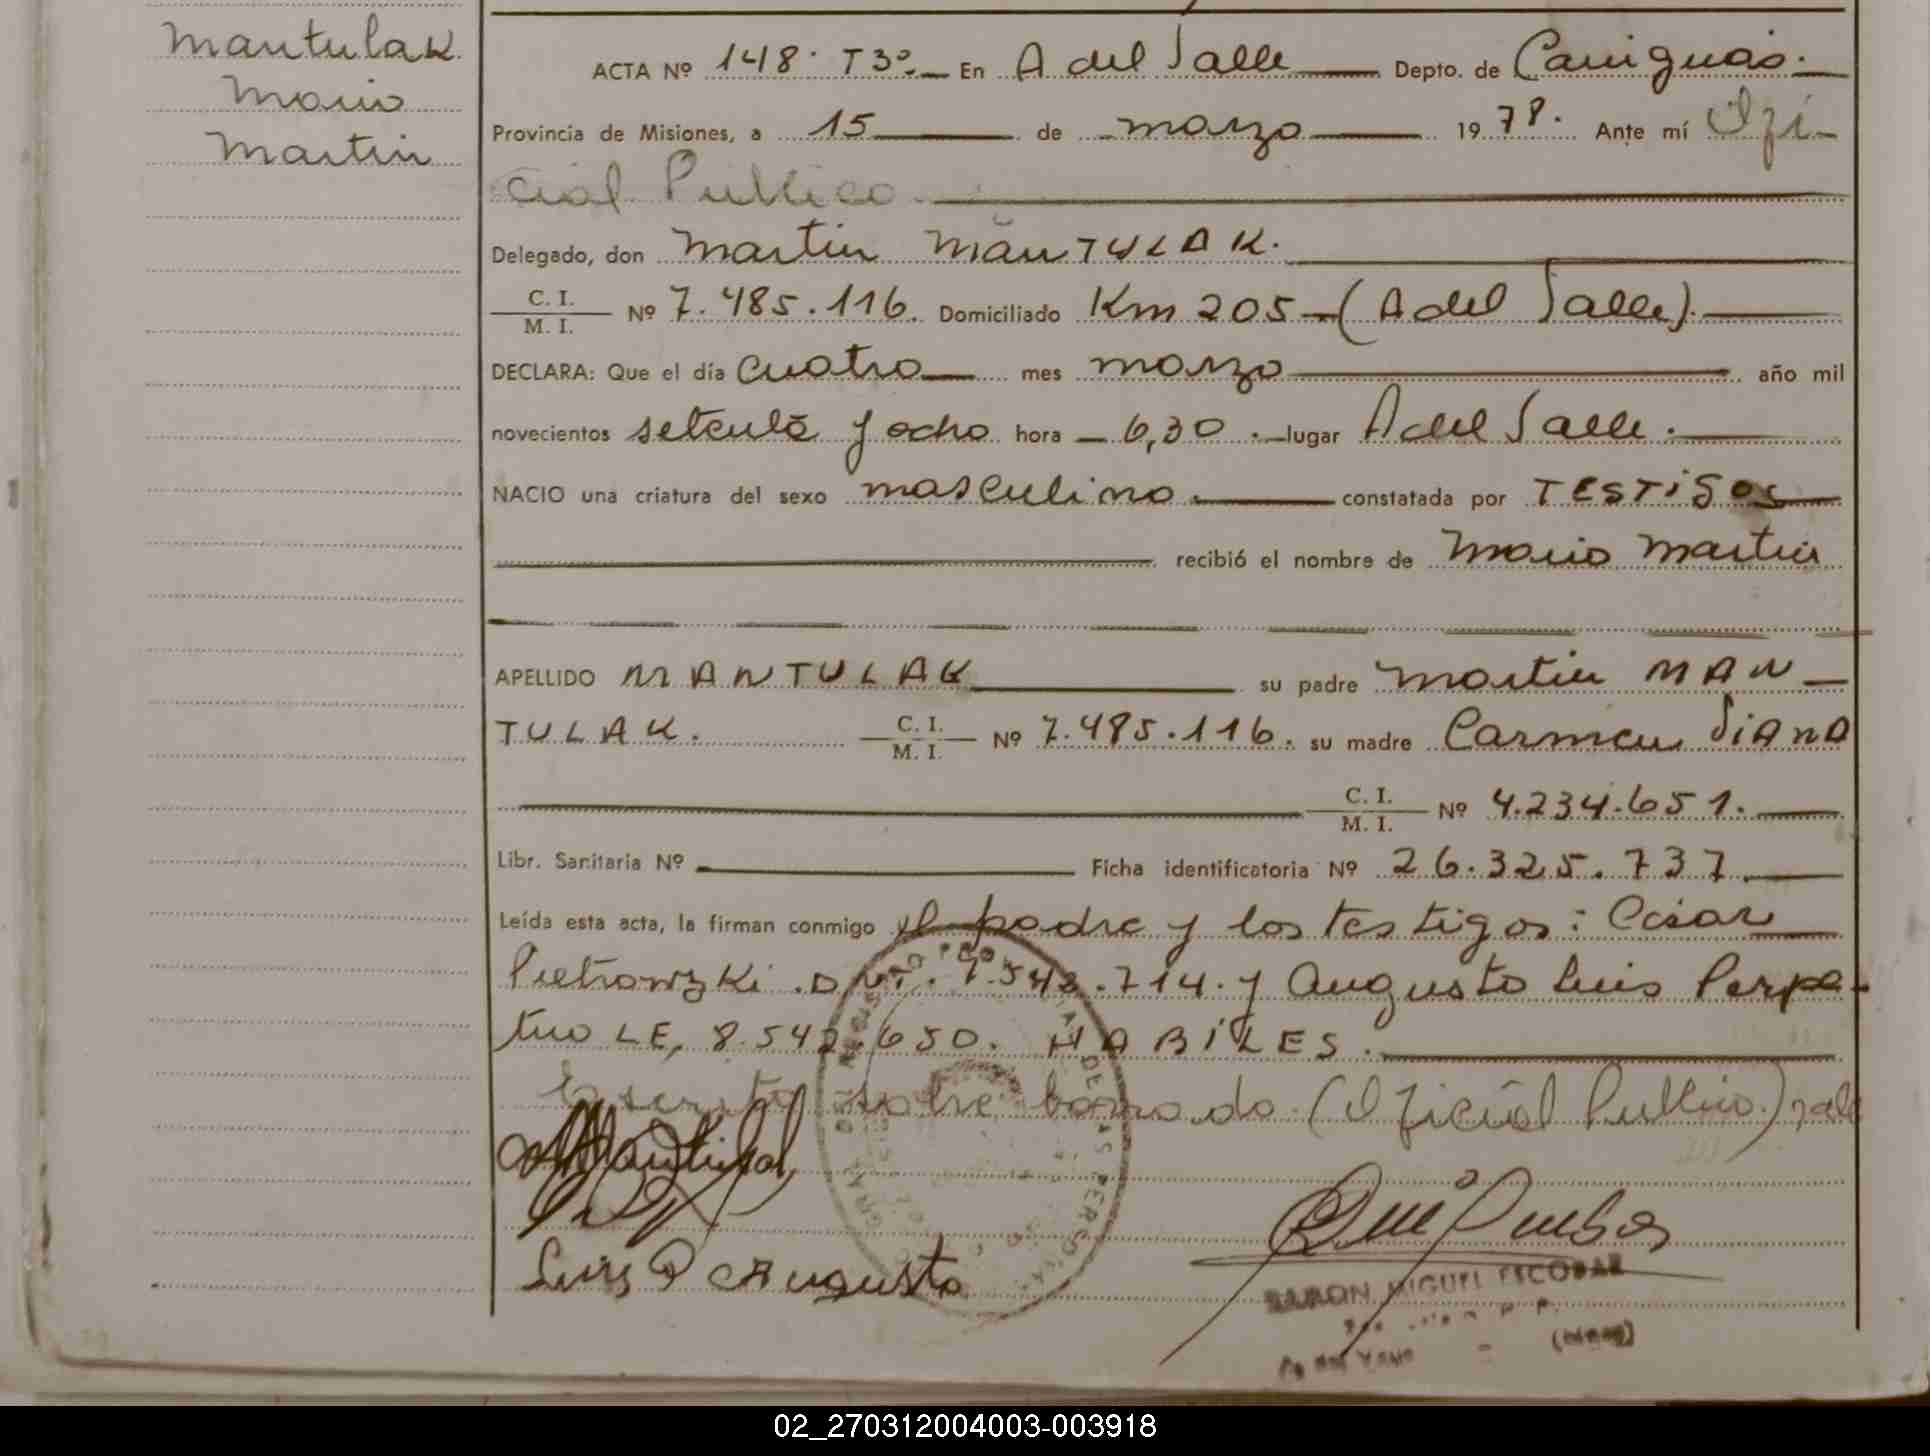 Mantulak
Mario
Martin
ACTA Nº 148· T3º En A del Valle Depto. de Cainguas.
Provincia de Misiones, a 15 de marzo 1978. Ante mí Ofi-
cial Publico
Delegado, don Martin ManTULAK.
C. I.
M. I. Nº 7.485.116. Domiciliado Km 205 - (A del Valle).
DECLARA: Que el día cuatro mes marzo año mil
novecientos setenta y ocho hora 6,30. lugar A del Valle.
NACIO una criatura del sexo masculino. constatada por TESTiGos
recibió el nombre de Mario Martin
APELLIDO MANTULAK su padre Martin MAN-
TULAK. C. I.
M. I. Nº 7.485.116. su madre Carmen
C. I.
M. I. Nº 4.234.651.
Libr. Sanitaria Nº Ficha identificatoria Nº 26.325.737
Leída esta acta, la firman conmigo el padre y los testigos: Cesar
Pietrowzki. D.N.I. 7.542.714. y Augusto Luis Perpe-
tuo LE, 8.542.650. HABILES.
Escrito sobre borrado (Oficial Publico) vale
Luis P Augusto
RAMON MIGUEL ESCOBAR
02_270312004003-003918